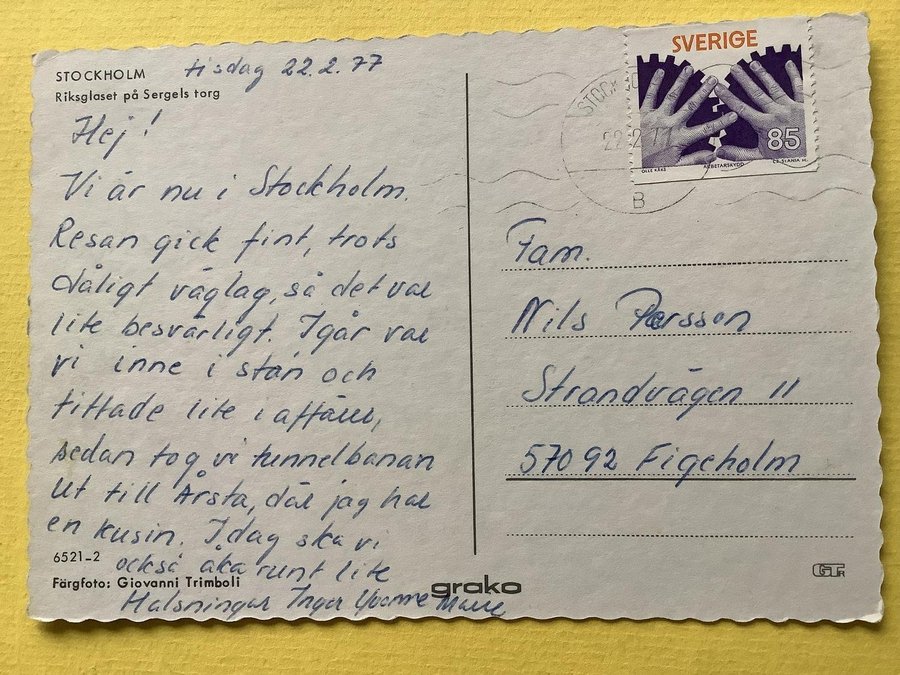 STOCKHOLM
Riksglaset på Sergels torg
tisdag 22.2.77
Hej!
Vi är nu i Stockholm.
Resan gick fint, trots
dåligt väglag, så det var
lite besvärligt. Igår var
vi inne i stan och
tittade lite i affärer,
sedan tog vi tunnelbanan
ut till Årsta, där jag har
en kusin. Idag ska vi
också åka runt lite
Hälsningar Inger Yvonne
6521-2
Färgfoto: Giovanni Trimboli
grako
SVERIGE
85
OLLE KÅKS
ARBETARSKYDD
CZ SLANIA SC
STOCK
22.2.77
B
Fam.
Nils Persson
Strandvägen 11
57092 Figeholm